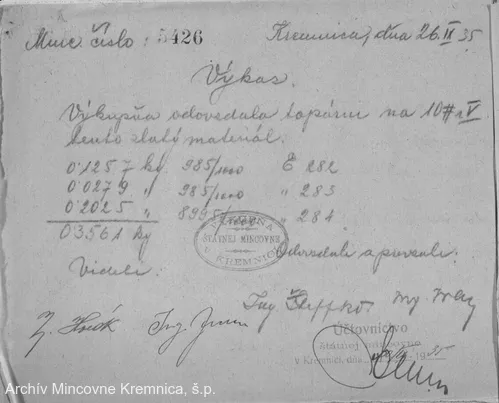 Minc. číslo: 5426
Kremnica, dňa 26.IX 35
Výkaz.
Výkupňa odovzdala topárni na 10# V
tento zlatý materiál.
0.1257 kg 985/1000 E 282
0.0279 " 985/1000 " 283
0.2025 " 899.5/1000 " 284
0.3561 kg
VÝKUPŇA
ŠTÁTNEJ MINCOVNE
V KREMNICI
Odovzdali a prevzali:
Videli:
Ing.
Ing.
Účtovníctvo
Štátnej mincovne
v Kremnici, dňa
Archív Mincovne Kremnica, š.p.